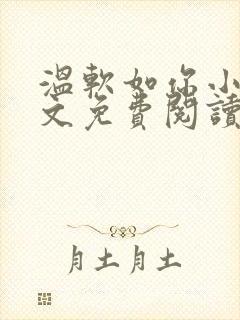 溫軟如你小
文免費閱讀
月土月土